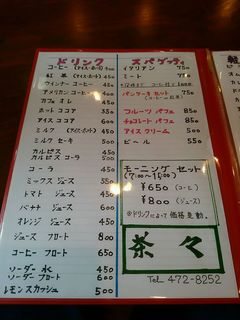 ドリンク
コーヒー (アイス・ホット) 400
紅茶 (アイス・ホット) 450
ウィンナーコーヒー 450
アメリカンコーヒー 400
カフェオレ 450
ホットココア 450
アイスココア 500
ミルク (アイス・ホット) 450
ミルクセーキ 500
カルピス 450
カルピスコーラ 500
コーラ 450
ミックスジュース 500
トマトジュース 450
バナナジュース 500
オレンジジュース 450
ジュースフロート 800
コーヒーフロート 650
ソーダー水 450
ソーダーフロート 600
レモンスカッシュ 500
スパゲッティ
イタリアン 750
ミート 750
パンケーキセット 850
フルーツパフェ 850
チョコレートパフェ 850
アイスクリーム 500
ビール 550
モーニングセット
¥650 (コーヒ)
¥800 (ジュース)
※ドリンクによって価格変動。
茶々
TEL 472-8252
軽